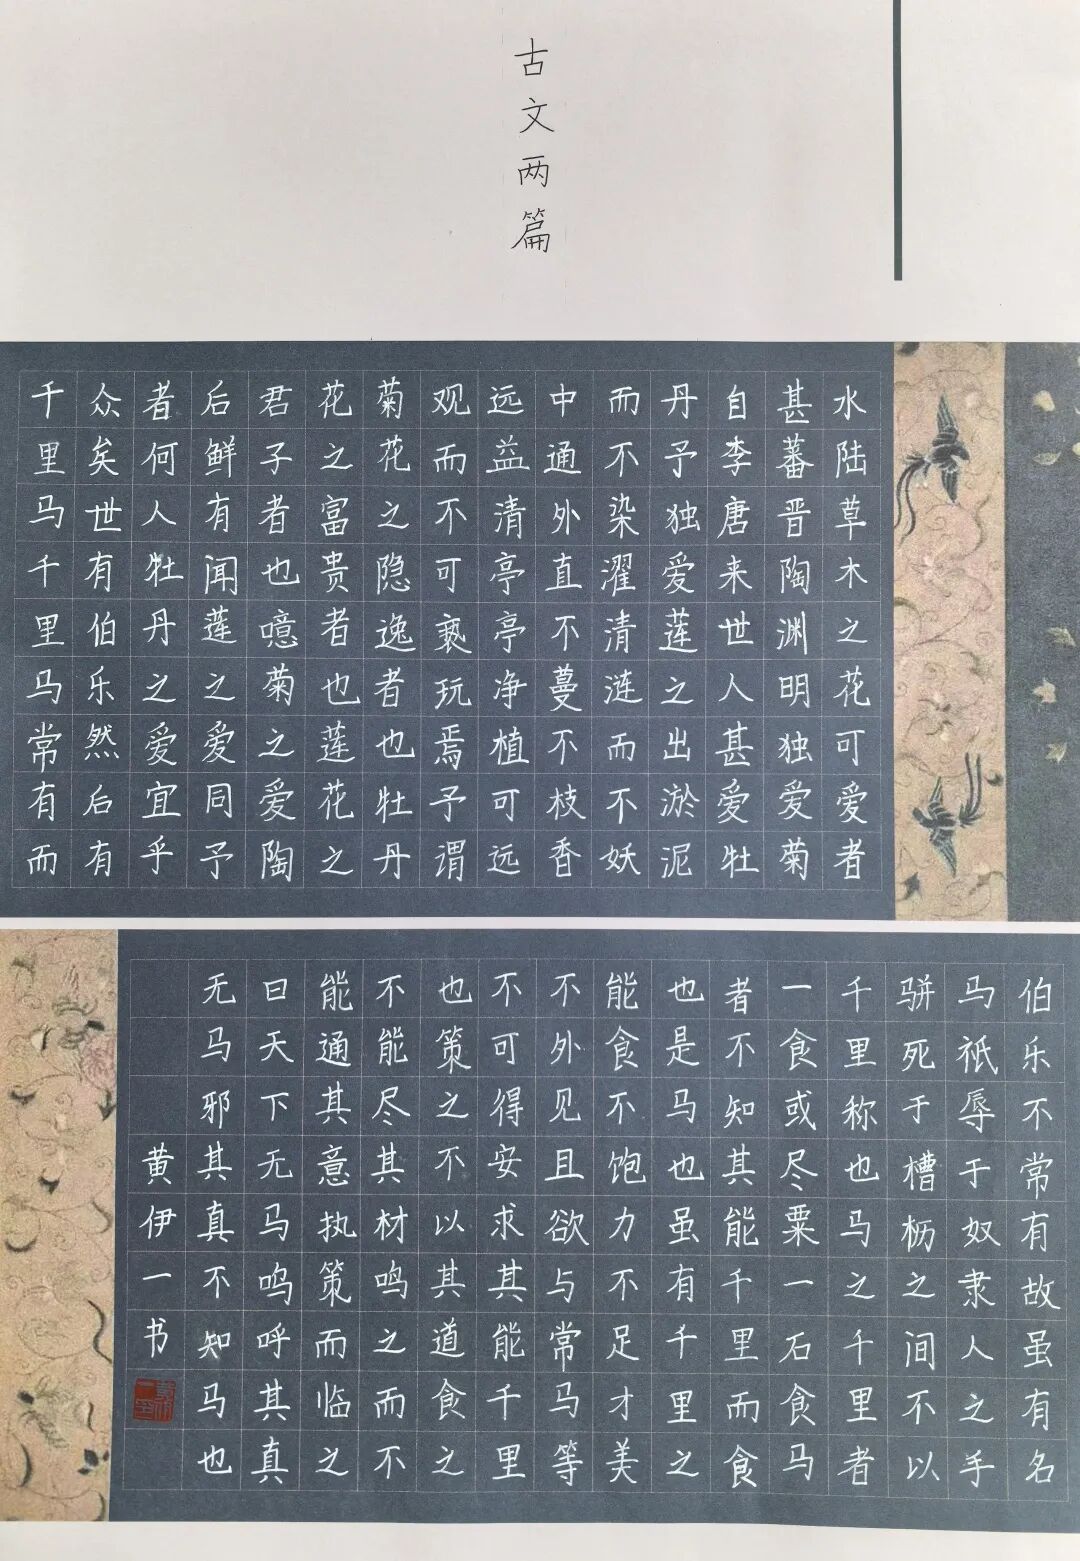 古文两篇
水陆草木之花可爱者
甚蕃晋陶渊明独爱菊
自李唐来世人甚爱牡
丹予独爱莲之出淤泥
而不染濯清涟而不妖
中通外直不蔓不枝香
远益清亭亭净植可远
观而不可亵玩焉予谓
菊花之隐逸者也牡丹
花之富贵者也莲花之
君子者也噫菊之爱陶
后鲜有闻莲之爱同予
者何人牡丹之爱宜乎
众矣世有伯乐然后有
千里马千里马常有而
伯乐不常有故虽有名
马祇辱于奴隶人之手
骈死于槽枥之间不以
千里称也马之千里者
一食或尽粟一石食马
者不知其能千里而食
也是马也虽有千里之
能食不饱力不足才美
不外见且欲与常马等
不可得安求其能千里
也策之不以其道食之
不能尽其材鸣之而不
能通其意执策而临之
曰天下无马鸣呼其真
无马邪其真不知马也
黄伊一书